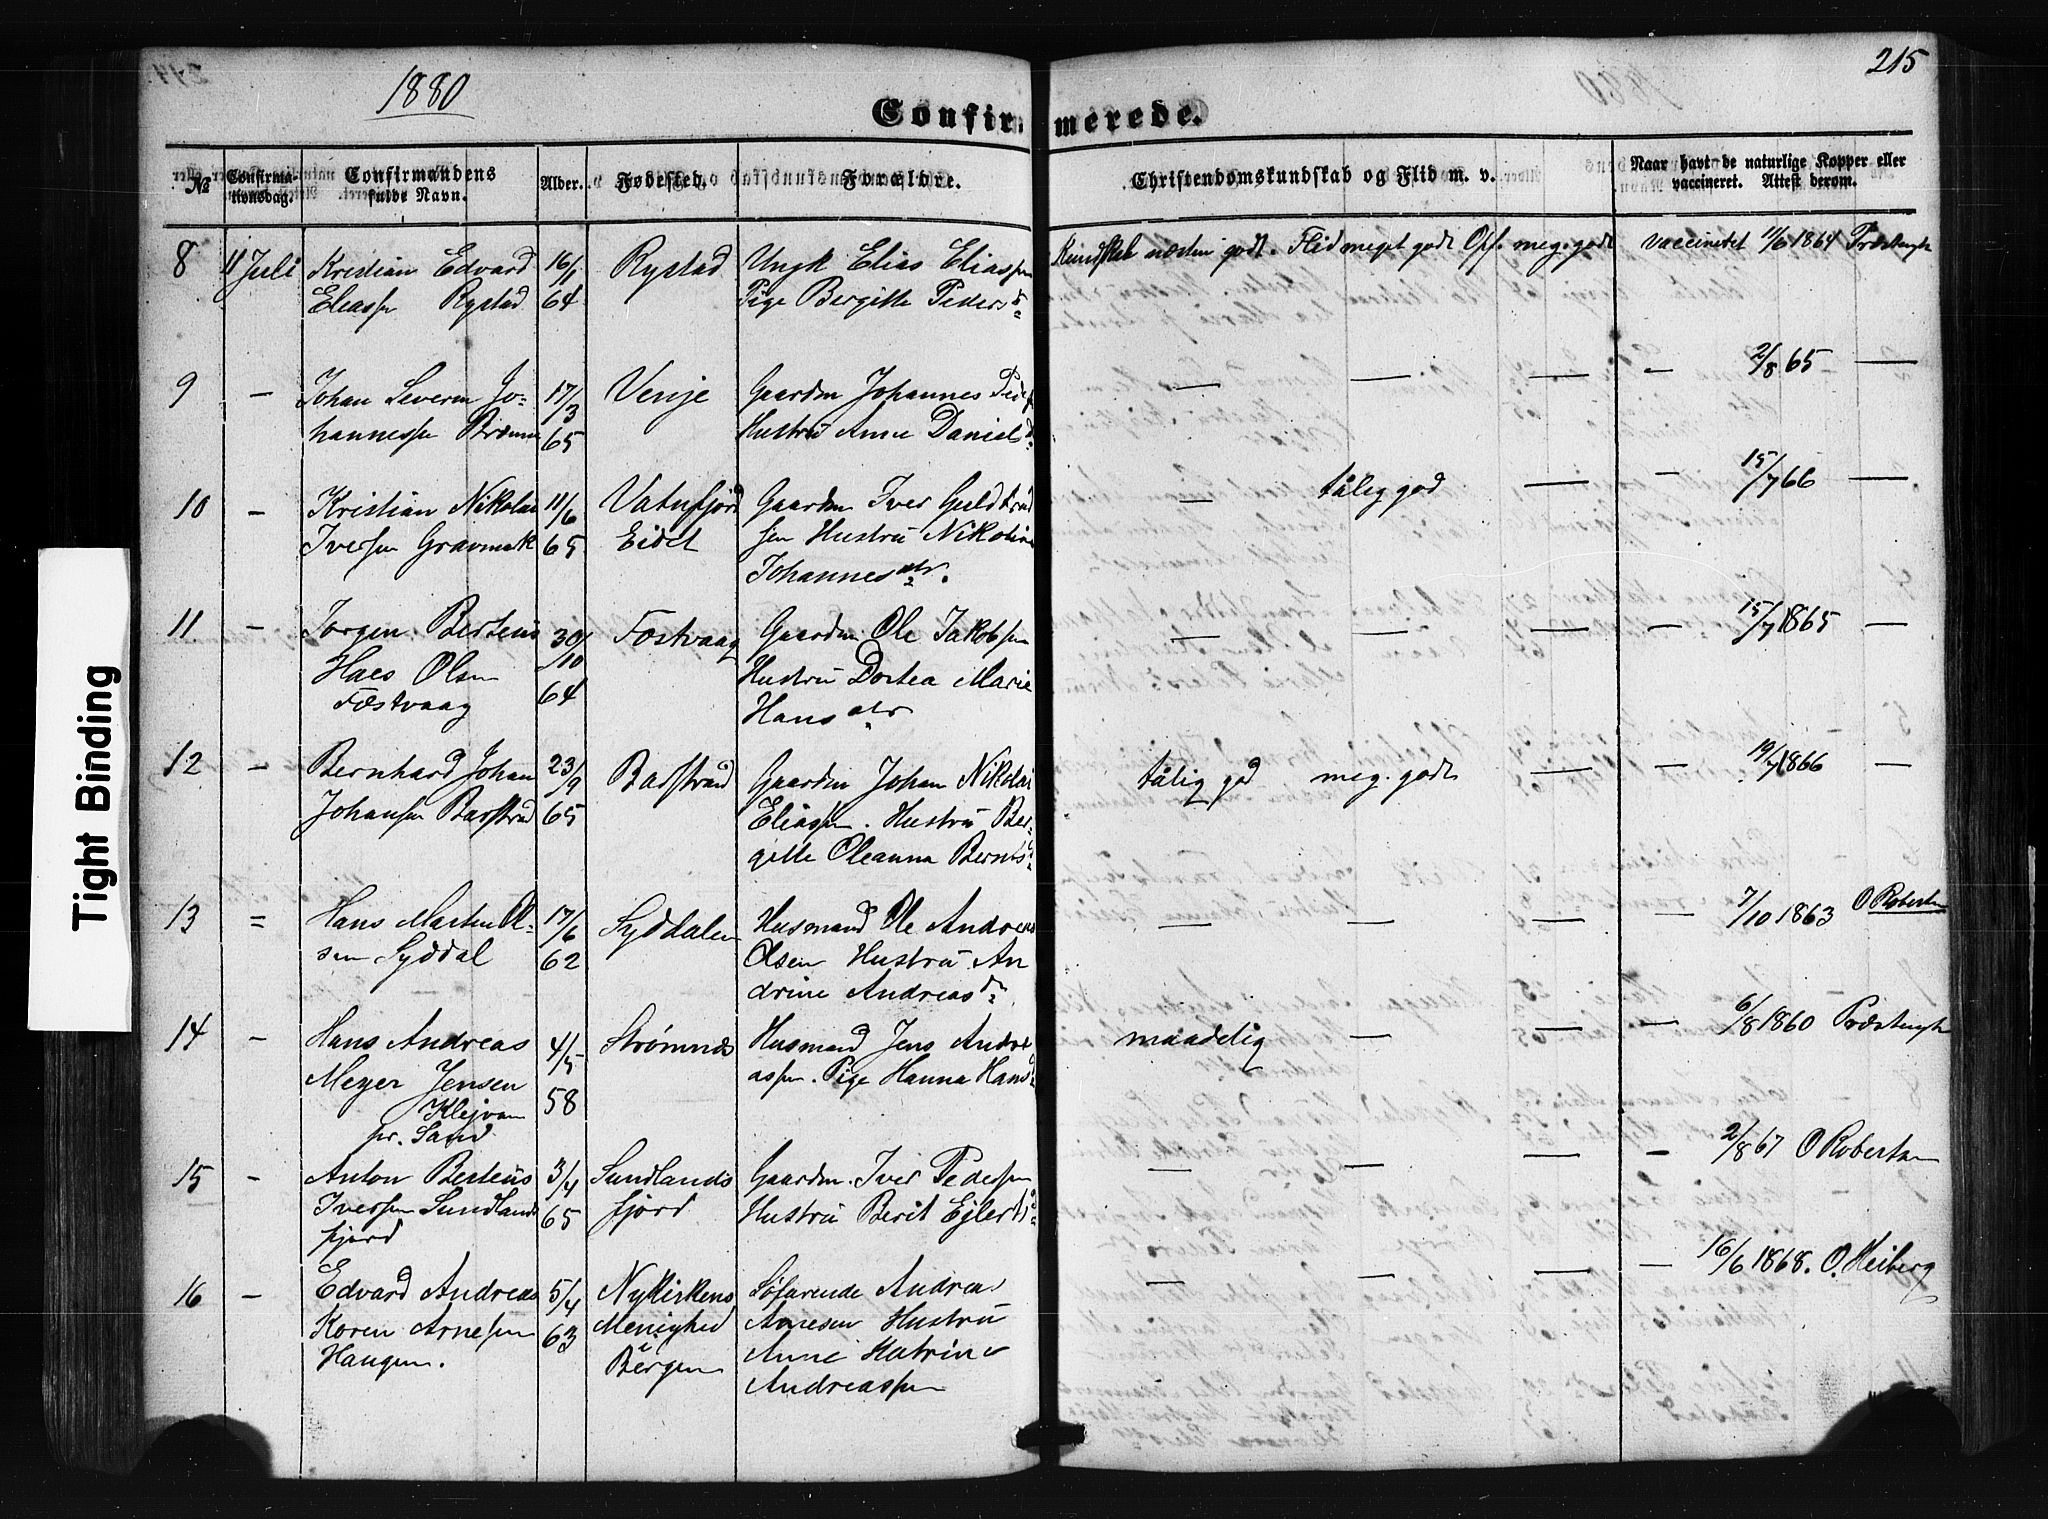 1880
215
Confirmerede.
№ Confirmationsdag. Confirmandens fulde Navn. Alder. Fødested. Forældre. Christendomskundskab og Flid m. v. Naar havt de naturlige Kopper eller vaccineret. Attest derom.
8 11 Juli Kristian Edvard 16/1 Rystad Ungk Elias Eliassen Kundskab næsten godt. Flid meget godt Opf. meg. godt vaccineret 11/6 1864
Eliassen Rystad 64 Pige Bergitte Pedersd
9 — Johan Severin Jo- 17/3 Venje Gaardm Johannes — — — — 2/8 65 —
hannessen 65 Hustru Anne Danielsd
10 — Kristian Nikolai 11/6 Vatnfjord Gaardm Iver — tålig god — — 15/7 66 —
Iversen Gravmark 65 Eidet Hustru Nikoline
Johannesdtr.
11 — Jørgen Berteus 30/10 Festvaag Gaardm. Ole Jakobsen — — — — 15/7 1865 —
Haes Olsen 64 Hustru Dortea Marie
Festvaag Hansdtr
12 — Bernhard Johan 23/9 Barstrand Gaardm Johan Nikolai tålig god meg. godt — — 19/7 1866 —
Johansen Barstrand 65 Eliassen. Hustru Ber-
gitte Oleanna Berntsd
13 = Hans Martin Ol- 17/6 Syddalen Husmand Ole Andreas — — — — 7/10 1863 O Robertsen
sen Syddal 62 Olsen Hustru An
drine Andreasdr
14 — Hans Andreas 4/5 Strømnæs Husmand Jens Andre maadelig — — — 6/8 1860
Meyer Jensen 58 assen. Pige Hanna Hansd
pr. Sand
15 — Anton Berteus 3/4 Sundlands Gaardm. Iver Pedersen — — — — 2/8 67 O Robertsen
Iversen Sundlands 65 fjord Hustru Berit Ejlertsd
fjord
16 — Edvard Andreas 5/4 Nykirkens Søfarende Andreas — — — — 16/6 1868. O. Heiberg
Koren Arnesen 63 Menighed Arnesen Hustru
Haugen. i Bergen Anne Katrine
Andreassen
Tight Binding